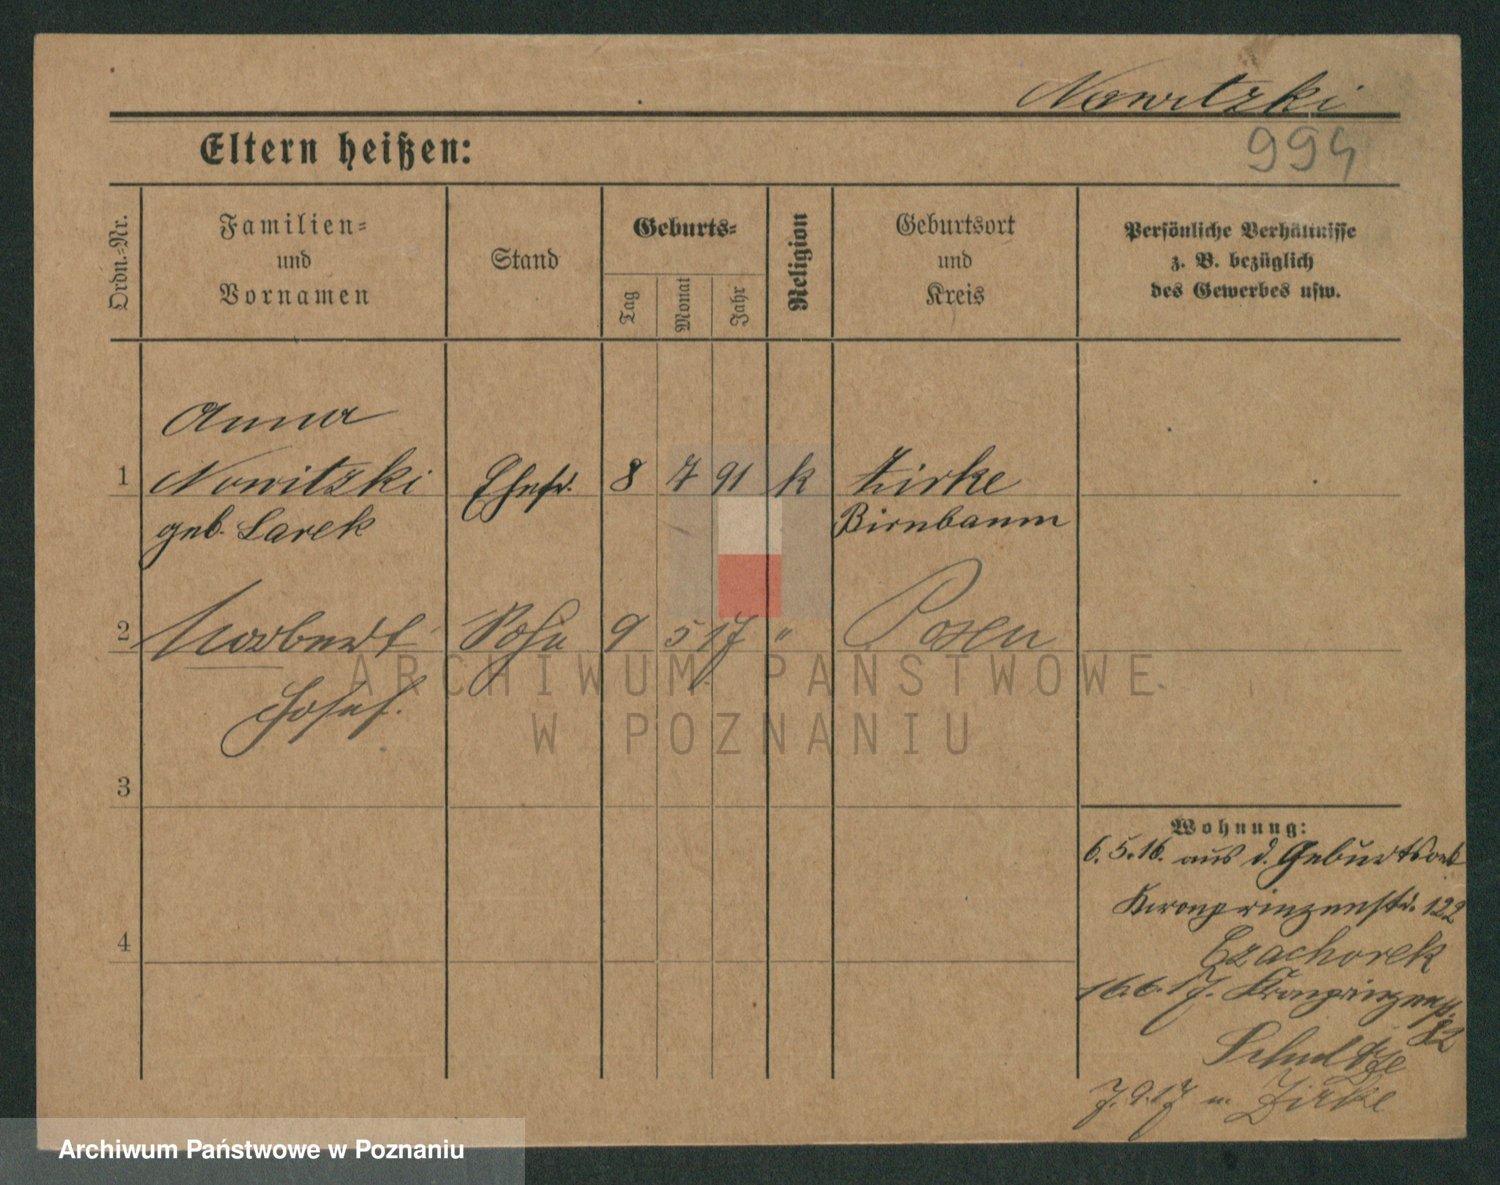 Nowitzki
Eltern heißen:
994
Ordn.-Nr.
Familien-
und
Vornamen
Stand
Geburts-
Tag
Monat
Jahr
Religion
Geburtsort
und
Kreis
Persönliche Verhältnisse
z. B. bezüglich
des Gewerbes usw.
Anna
1 Nowitzki Ehefr. 8 7 91 k Zirke
geb. Larek Birnbaum
2 Norbert Sohn 9 5 17 " Posen
Josef.
ARCHIWUM PAŃSTWOWE
W POZNANIU
3
Wohnung:
6.5.16. aus d. Geburtsort
Kronprinzenstr. 122
Czachorek
4
16.6.17. Kronprinzenstr.
82
Schultze
7.9.17 n. Zirke
Archiwum Państwowe w Poznaniu